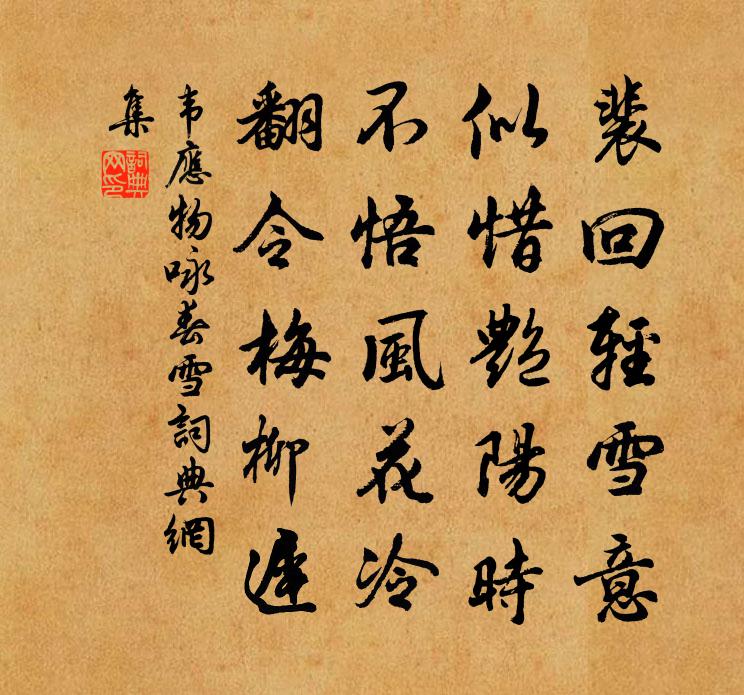 裴回輕雪意
似惜艷陽時
不悟風花冷
翻令梅柳遲
韦應物咏春雪詞典網
集
詞典
网印